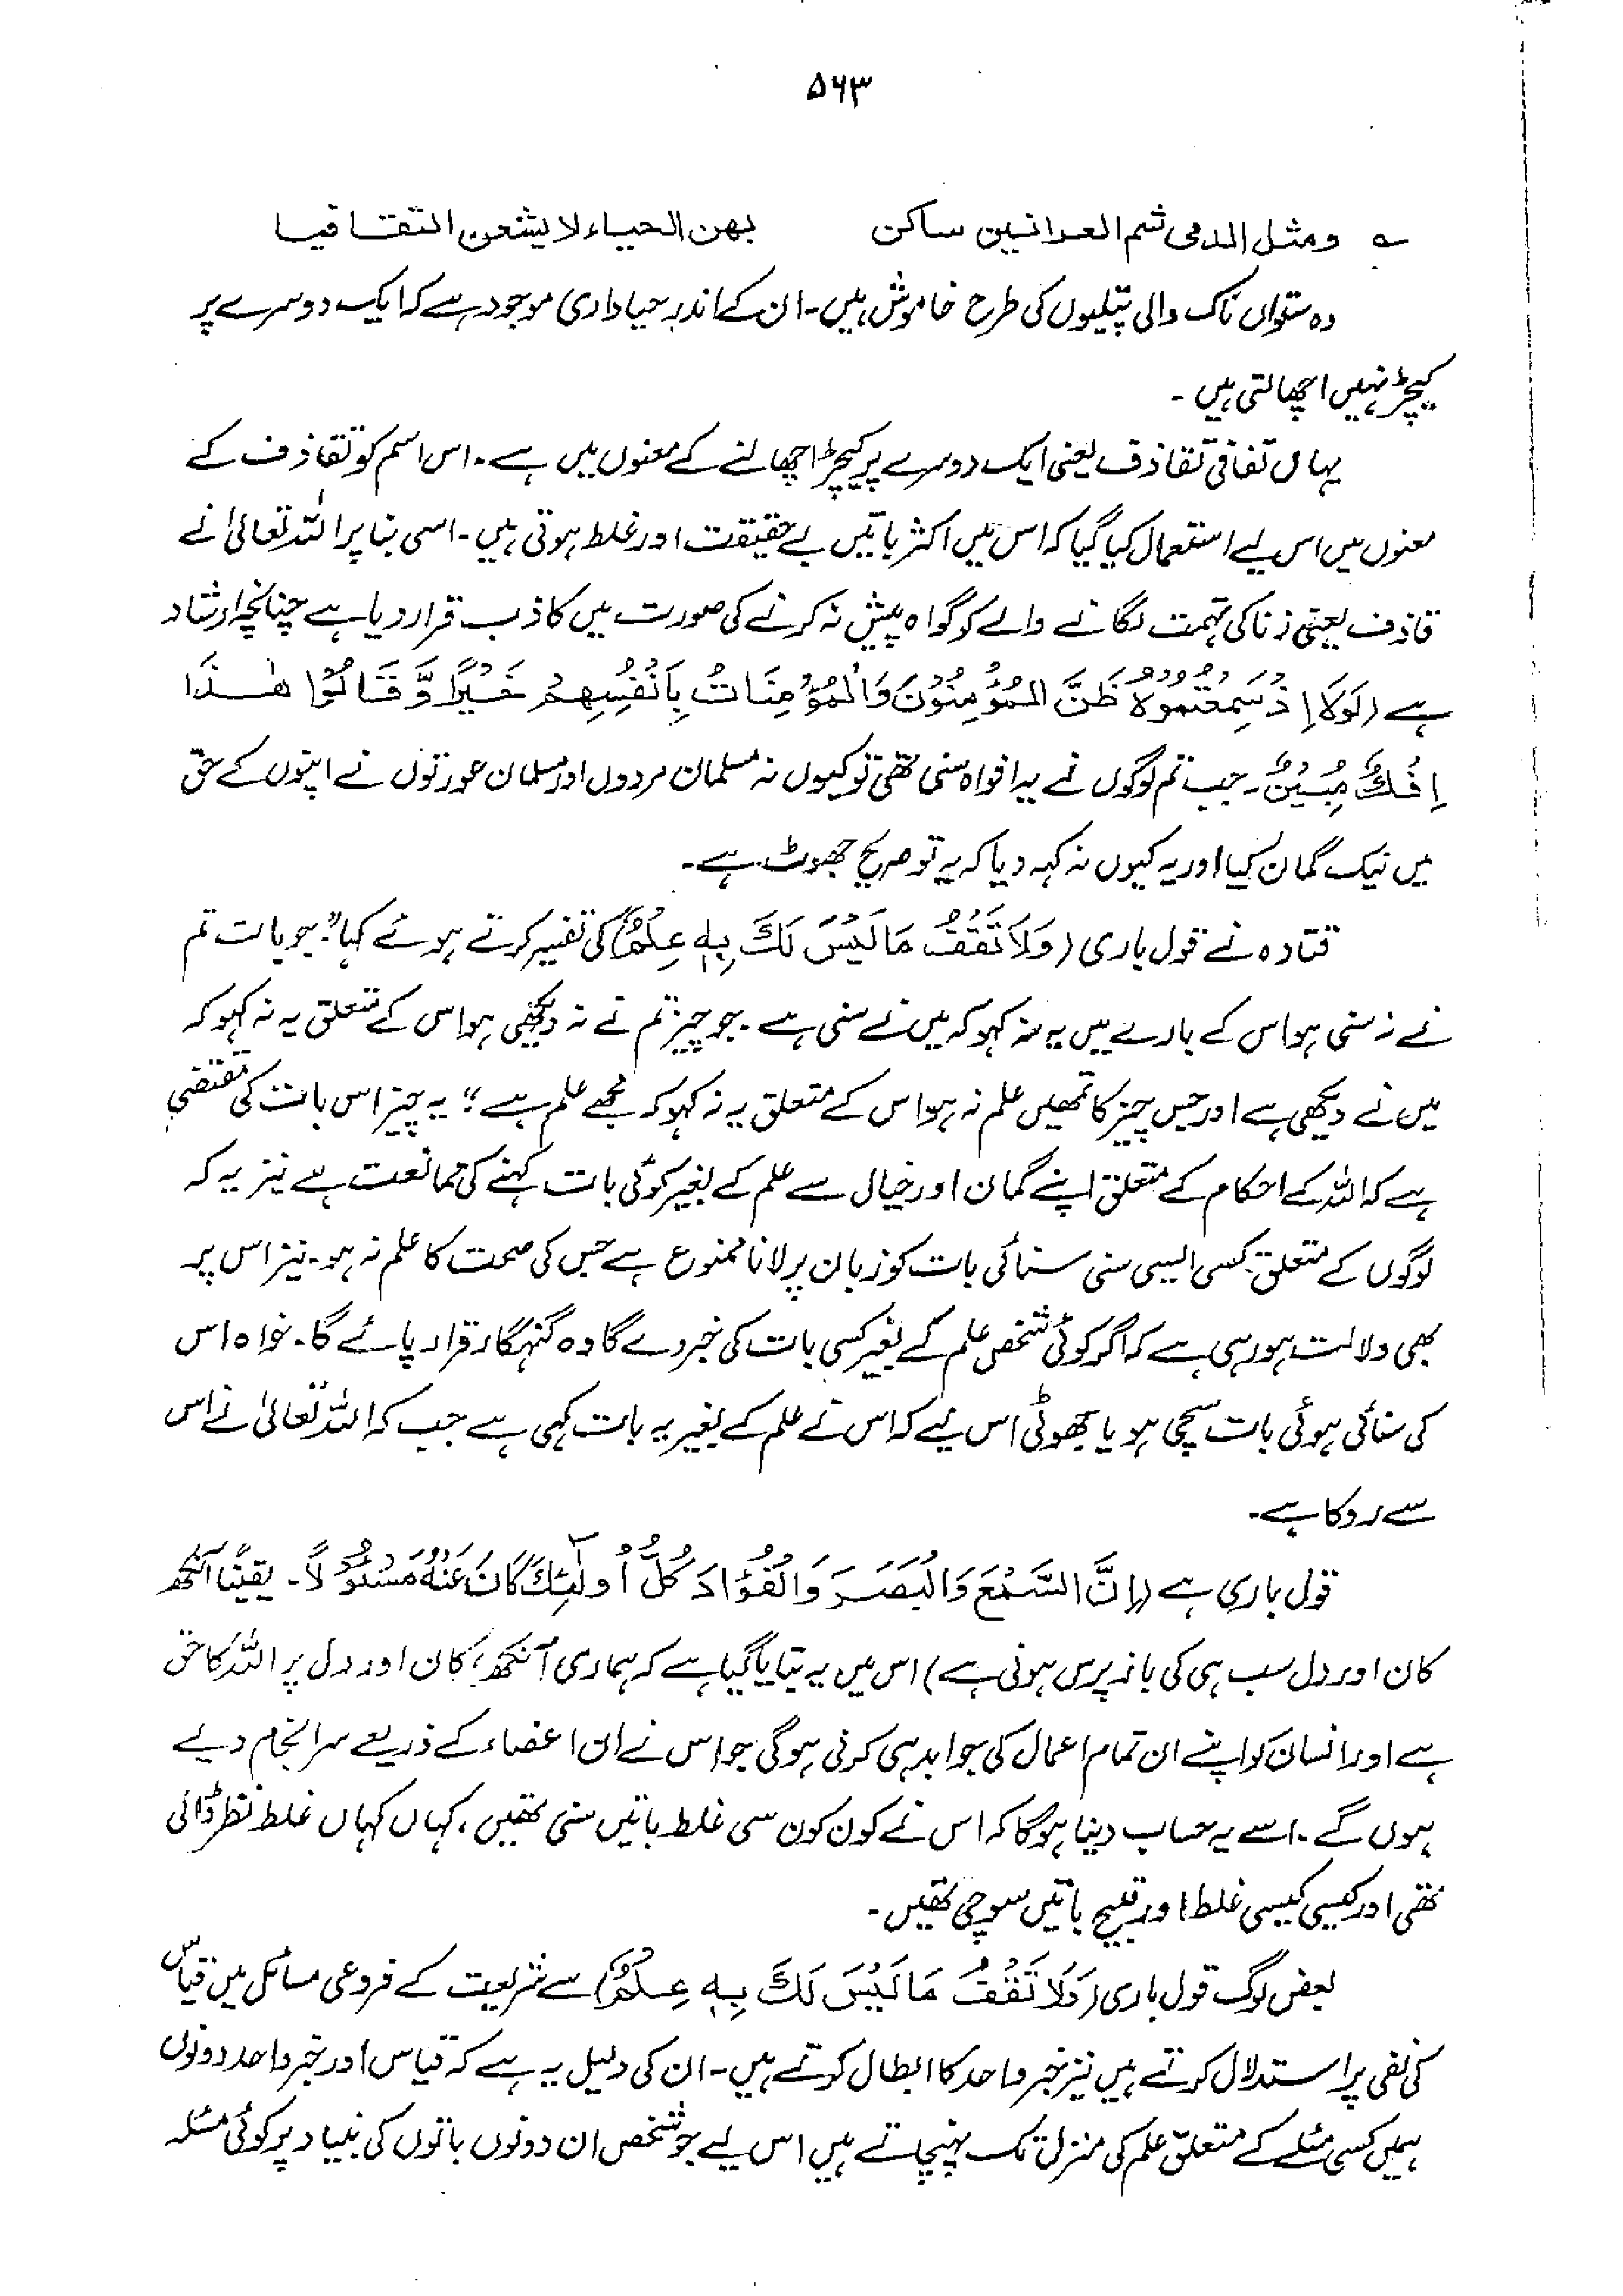 ۵۶۳
؎ ومثل الدمی شم العرانین ساکن بهن الحیاء لا یشعن التقافیا
وہ ستواں ناک والی پتلیوں کی طرح خاموش ہیں۔ ان کے اندر حیاداری موجود ہے کہ ایک دوسرے پر
کیچڑ نہیں اچھالتی ہیں۔
یہاں تقافی تقاذف یعنی ایک دوسرے پر کیچڑ اچھالنے کے معنوں میں ہے۔ اس اسم کو تقاذف کے
معنوں میں اس لیے استعمال کیا گیا کہ اس میں اکثر باتیں بے حقیقت اور غلط ہوتی ہیں۔ اسی بنا پر اللہ تعالیٰ نے
قاذف یعنی زنا کی تہمت لگانے والے کو گواہ پیش نہ کرنے کی صورت میں کاذب قرار دیا ہے چنانچہ ارشاد
ہے (لَوْلَا اِذْ سَمِعْتُمُوْهُ ظَنَّ الْمُؤْمِنُوْنَ وَالْمُؤْمِنَاتُ بِاَنْفُسِهِمْ خَيْرًا وَّ قَالُوْا هٰذَا
اِفْكٌ مُّبِيْنٌ۔ جب تم لوگوں نے یہ افواہ سنی تھی تو کیوں نہ مسلمان مردوں اور مسلمان عورتوں نے اپنوں کے حق
میں نیک گمان کیا اور یہ کیوں نہ کہہ دیا کہ یہ تو صریح جھوٹ ہے۔
قتادہ نے قول باری (وَلَا تَقْفُ مَا لَيْسَ لَكَ بِهٖ عِلْمٌ) کی تفسیر کرتے ہوئے کہا "جو بات تم
نے نہ سنی ہو اس کے بارے میں یہ نہ کہو کہ میں نے سنی ہے۔ جو چیز تم نے نہ دیکھی ہو اس کے متعلق یہ نہ کہو کہ
میں نے دیکھی ہے اور جس چیز کا تمھیں علم نہ ہو اس کے متعلق یہ نہ کہو کہ مجھے علم ہے"؛ یہ چیز اس بات کی مقتضی
ہے کہ اللہ کے احکام کے متعلق اپنے گمان اور خیال سے علم کے بغیر کوئی بات کہنے کی ممانعت ہے نیز یہ کہ
لوگوں کے متعلق کسی ایسی سنی سنائی بات کو زبان پر لانا ممنوع ہے جس کی صحت کا علم نہ ہو۔ نیز اس پر
بھی دلالت ہو رہی ہے کہ اگر کوئی شخص علم کے بغیر کسی بات کی خبر دے گا وہ گنہگار قرار پائے گا۔ خواہ اس
کی سنائی ہوئی بات سچی ہو یا جھوٹی اس لیے کہ اس نے علم کے بغیر یہ بات کہی ہے جب کہ اللہ تعالیٰ نے اس
سے روکا ہے۔
قول باری ہے (اِنَّ السَّمْعَ وَالْبَصَرَ وَالْفُؤَادَ كُلُّ اُولٰٓئِكَ كَانَ عَنْهُ مَسْئُوْلًا۔ یقیناً آنکھ
کان اور دل سب ہی کی باز پرس ہونی ہے) اس میں یہ بتایا گیا ہے کہ ہماری آنکھ، کان اور دل پر اللہ کا حق
ہے اور انسان کو اپنے ان تمام اعمال کی جوابدہی کرنی ہوگی جو اس نے ان اعضاء کے ذریعے سرانجام دیے
ہوں گے۔ اسے یہ حساب دینا ہوگا کہ اس نے کون کون سی غلط باتیں سنی تھیں، کہاں کہاں غلط نظر ڈالی
تھی اور کیسی کیسی غلط اور قبیح باتیں سوچی تھیں۔
بعض لوگ قول باری (وَلَا تَقْفُ مَا لَيْسَ لَكَ بِهٖ عِلْمٌ) سے شریعت کے فروعی مسائل میں قیاس
کی نفی پر استدلال کرتے ہیں نیز خبر واحد کا ابطال کرتے ہیں۔ ان کی دلیل یہ ہے کہ قیاس اور خبر واحد دونوں
ہمیں کسی مسئلے کے متعلق علم کی منزل تک پہنچاتے ہیں اس لیے جو شخص ان دونوں باتوں کی بنیاد پر کوئی مسئلہ